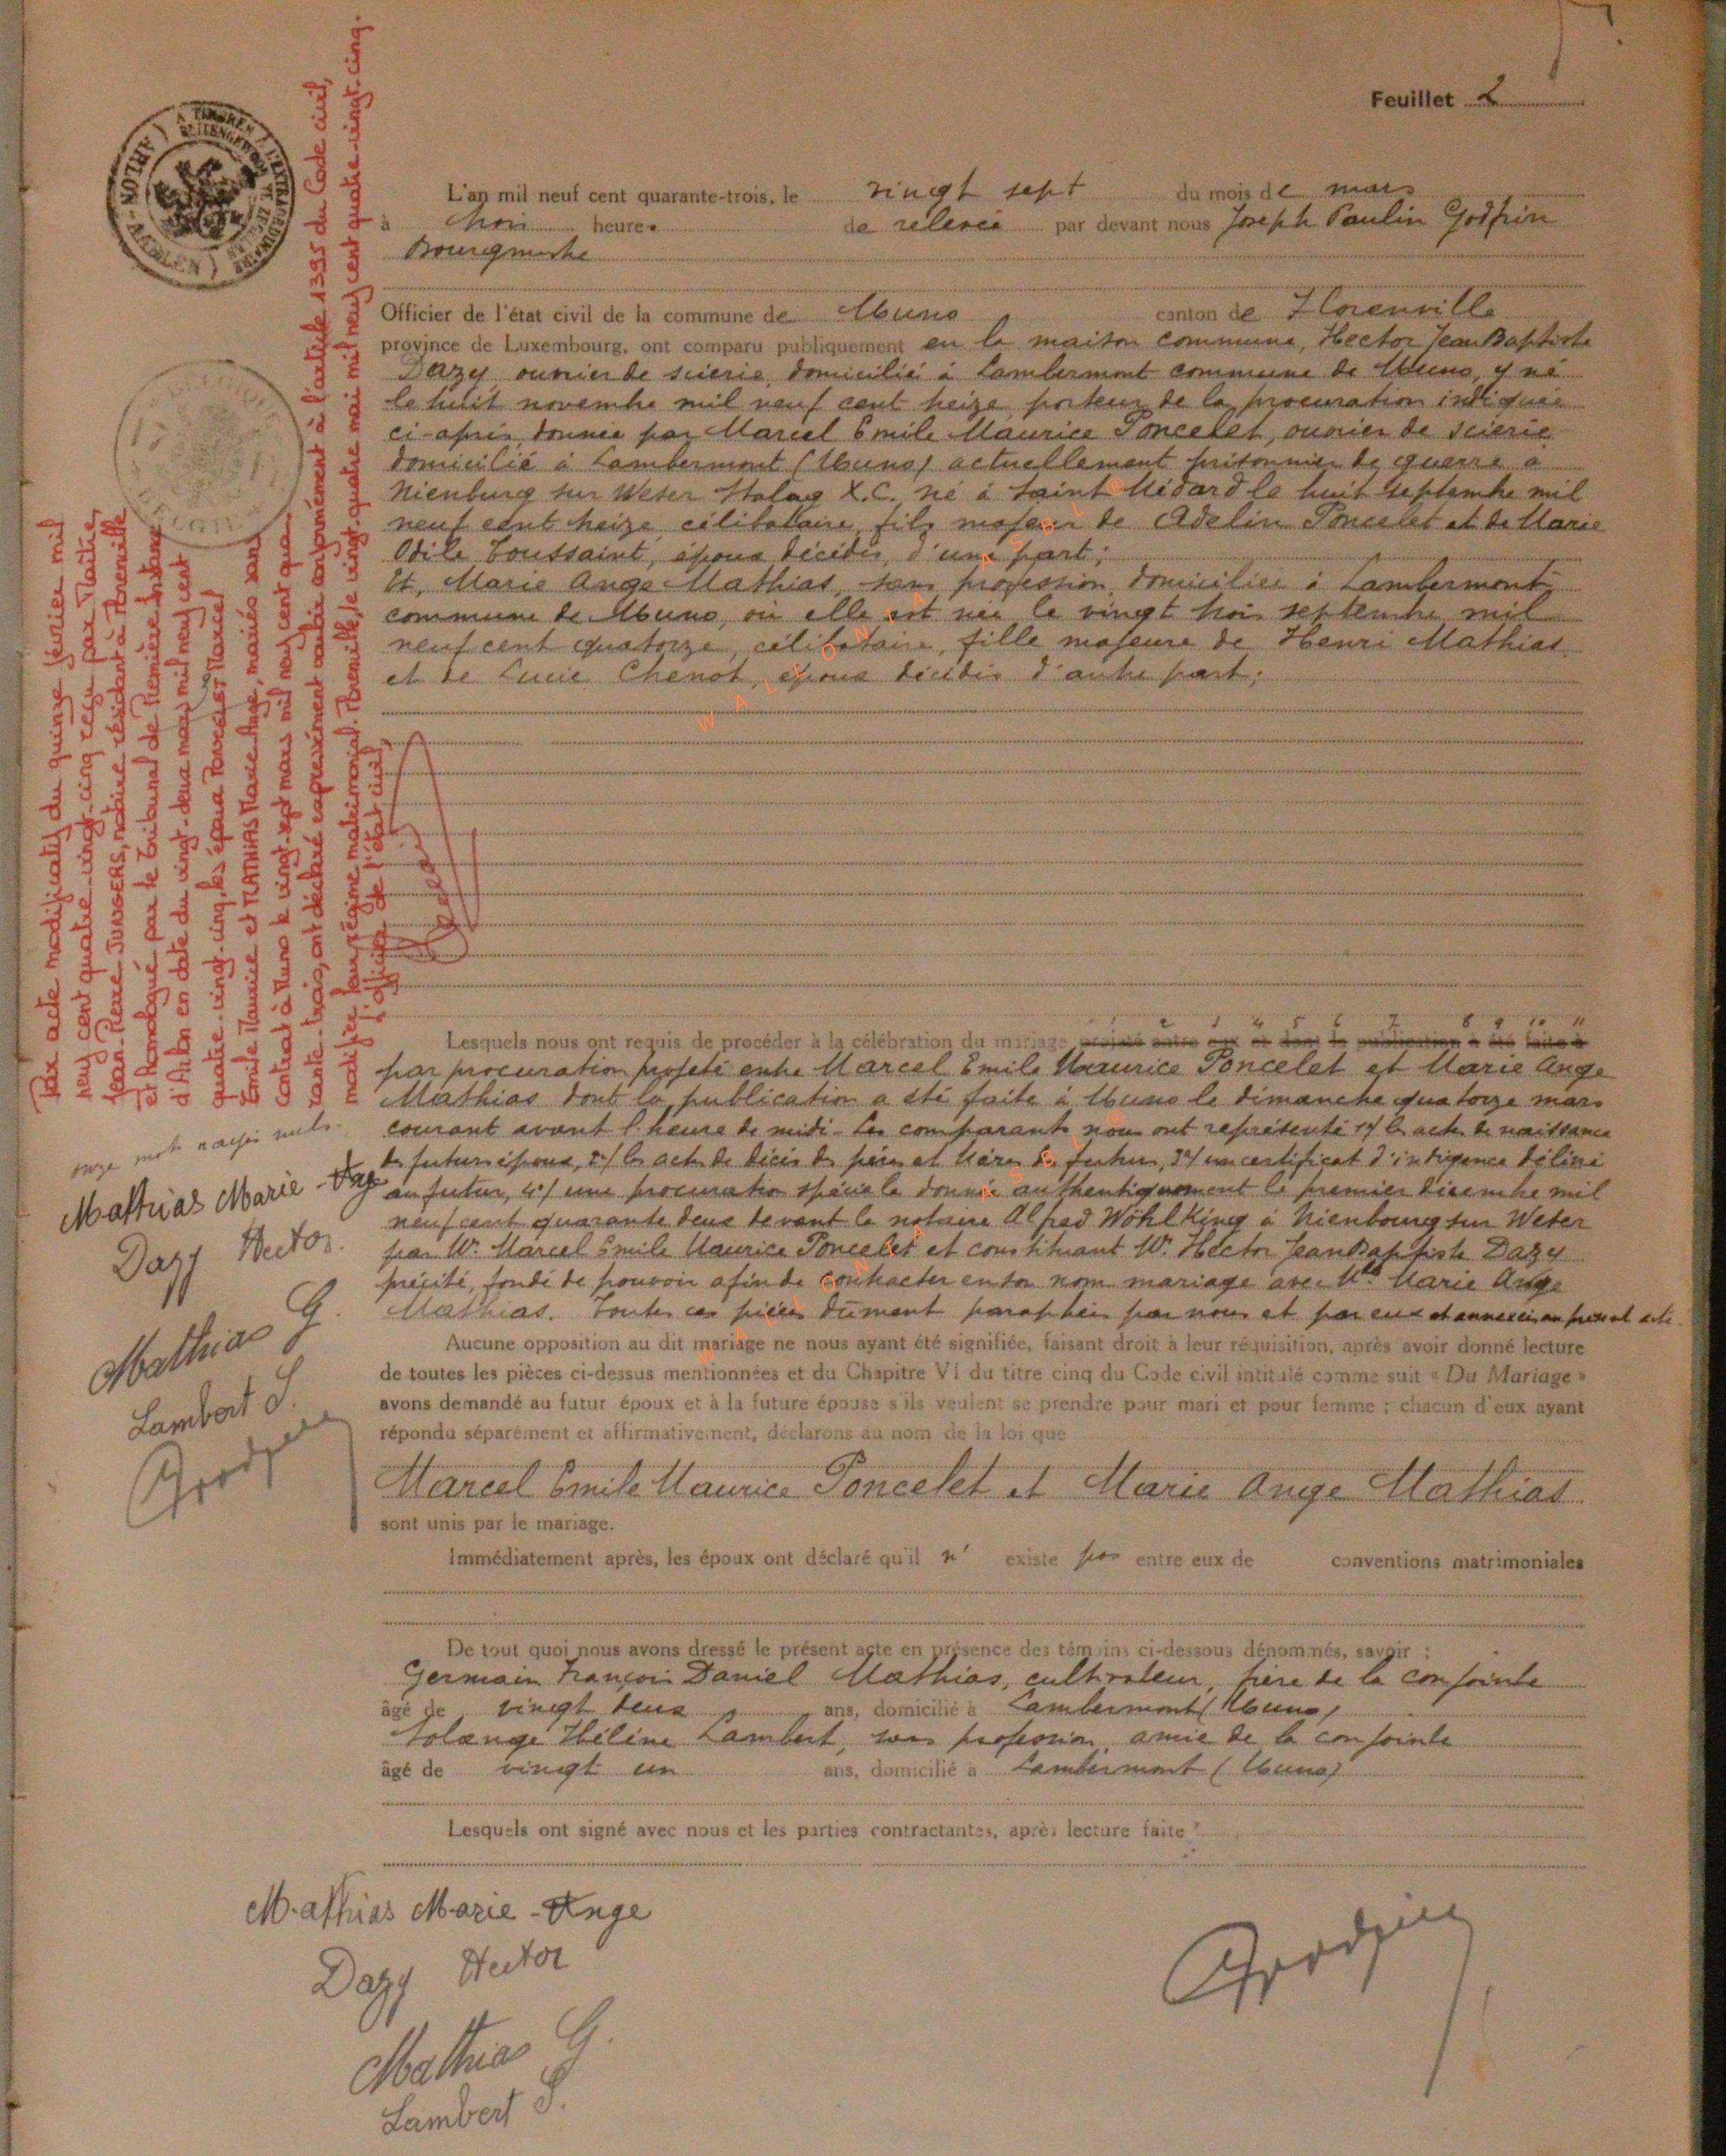 Feuillet 2
L'an mil neuf cent quarante-trois, le vingt sept du mois de mars
à trois heures de relevée par devant nous Joseph Paulin Godfrin
Bourgmestre
Officier de l'état civil de la commune de Muno canton de Florenville
province de Luxembourg, ont comparu publiquement en la maison commune, Hector Jean Baptiste
Dazy ouvrier de scierie, domicilié à Lambermont commune de Muno, y né
le huit novembre mil neuf cent treize, porteur de la procuration indiquée
ci-après donnée par Marcel Emile Maurice Poncelet, ouvrier de scierie
domicilié à Lambermont (Muno) actuellement prisonnier de guerre à
Nienburg sur Weser Stalag X.C. né à Saint Médard le huit septembre mil
neuf cent treize, célibataire, fils majeur de Adelin Poncelet et de Marie
Odile Toussaint, époux décédés, d'une part;
Et, Marie Ange Mathias, sans profession, domiciliée à Lambermont
commune de Muno, où elle est née le vingt trois septembre mil
neuf cent quatorze, célibataire, fille majeure de Henri Mathias
et de Lucie Chenot, époux décédés d'autre part;
Lesquels nous ont requis de procéder à la célébration du mariage projeté entre eux et dont la publication a été faite à
1 2 3 4 5 6 7 8 9 10 11
par procuration projeté entre Marcel Emile Maurice Poncelet et Marie Ange
Mathias dont la publication a été faite à Muno le dimanche quatorze mars
courant avant l'heure de midi. Les comparants nous ont représenté 1°/ les actes de naissance
des futurs époux, 2°/ les actes de décès des pères et mères des futurs, 3°/ un certificat d'indigence délivré
au futur, 4°/ une procuration spéciale donnée authentiquement le premier décembre mil
neuf cent quarante deux devant le notaire Alfred Wöhlking à Nienbourg sur Weser
par Mr. Marcel Emile Maurice Poncelet et constituant Mr. Hector Jean Baptiste Dazy
précité, fondé de pouvoir afin de contracter en son nom mariage avec Mlle Marie Ange
Mathias. Toutes ces pièces dûment paraphées par nous et par eux et annexées au présent acte.
Aucune opposition au dit mariage ne nous ayant été signifiée, faisant droit à leur réquisition, après avoir donné lecture
de toutes les pièces ci-dessus mentionnées et du Chapitre VI du titre cinq du Code civil intitulé comme suit « Du Mariage »
avons demandé au futur époux et à la future épouse s'ils veulent se prendre pour mari et pour femme ; chacun d'eux ayant
répondu séparément et affirmativement, déclarons au nom de la loi que
Marcel Emile Maurice Poncelet et Marie Ange Mathias
sont unis par le mariage.
Immédiatement après, les époux ont déclaré qu'il n' existe pas entre eux de conventions matrimoniales
De tout quoi nous avons dressé le présent acte en présence des témoins ci-dessous dénommés, savoir :
Germain François Daniel Mathias, cultivateur, frère de la conjointe
âgé de vingt deux ans, domicilié à Lambermont (Muno)
Solange Hélène Lambert, sans profession, amie de la conjointe
âgé de vingt un ans, domicilié à Lambermont (Muno)
Lesquels ont signé avec nous et les parties contractantes, après lecture faite
Mathias Marie-Ange
Dazy Hector
Mathias G.
Lambert S.
Godfrin
Par acte modificatif du quinze février mil
neuf cent quatre-vingt-cinq reçu par Maître
Jean-Pierre JUNGERS, notaire résidant à Florenville
et homologué par le Tribunal de Première Instance
d'Arlon en date du vingt-deux mars mil neuf cent
quatre-vingt-cinq, les époux PONCELET Marcel
Emile Maurice et MATHIAS Marie Ange, mariés sans
contrat à Muno le vingt-sept mars mil neuf cent qua-
rante-trois, ont déclaré expressément vouloir conformément à l'article 1395 du Code civil,
modifier leur régime matrimonial. Florenville, le vingt-quatre mai mil neuf cent quatre-vingt-cinq.
L'officier de l'état civil,
onze mots rayés nuls.
Mathias Marie-Ange
Dazy Hector.
Mathias G.
Lambert S.
Godfrin
A TIMBRER A L'EXTRAORDINAIRE
BUITENGEWOON TE ZEGELEN
( ARLON - AARLEN )
BELGIQUE
BELGIE
WALLONIA ASBL ©
WALLONIA ASBL ©